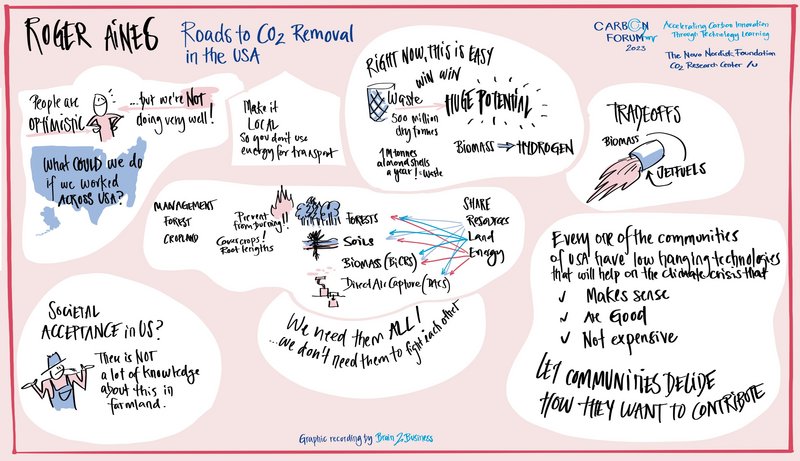 ROGER AINES
Roads to CO2 Removal
in the USA
CARBON
FORUM
2023
Accelerating Carbon Innovation
Through Technology Learning
The Novo Nordisk Foundation
CO2 Research Center
People are
OPTIMISTIC
...but we're NOT
doing very well!
What COULD we do
if we worked
ACROSS USA?
Make it
LOCAL
so you don't use
energy for transport
RIGHT NOW, THIS IS EASY
WIN WIN
Waste
500 million
dry tonnes
HUGE POTENTIAL
1M tonnes
almond shells
a year! = Waste
BIOMASS → HYDROGEN
TRADEOFFS
BIOMASS
JETFUELS
MANAGEMENT
FOREST
CROPLAND
Prevent
from burning!!
Covercrops!
Root lengths
FORESTS
SOILS
BIOMASS (BiCRS)
Direct Air Capture (DACS)
SHARE
Resources
Land
Energy
We need them ALL!
...we don't need them to fight each other
SOCIETAL
ACCEPTANCE in US?
There is NOT
a lot of knowledge
about this in
farmland.
Every one of the communities
of USA have low hanging technologies
that will help on the climate crisis that
✓ Makes sense
✓ Are Good
✓ Not expensive
LET COMMUNITIES DECIDE
HOW THEY WANT TO CONTRIBUTE
Graphic recording by Brain2Business